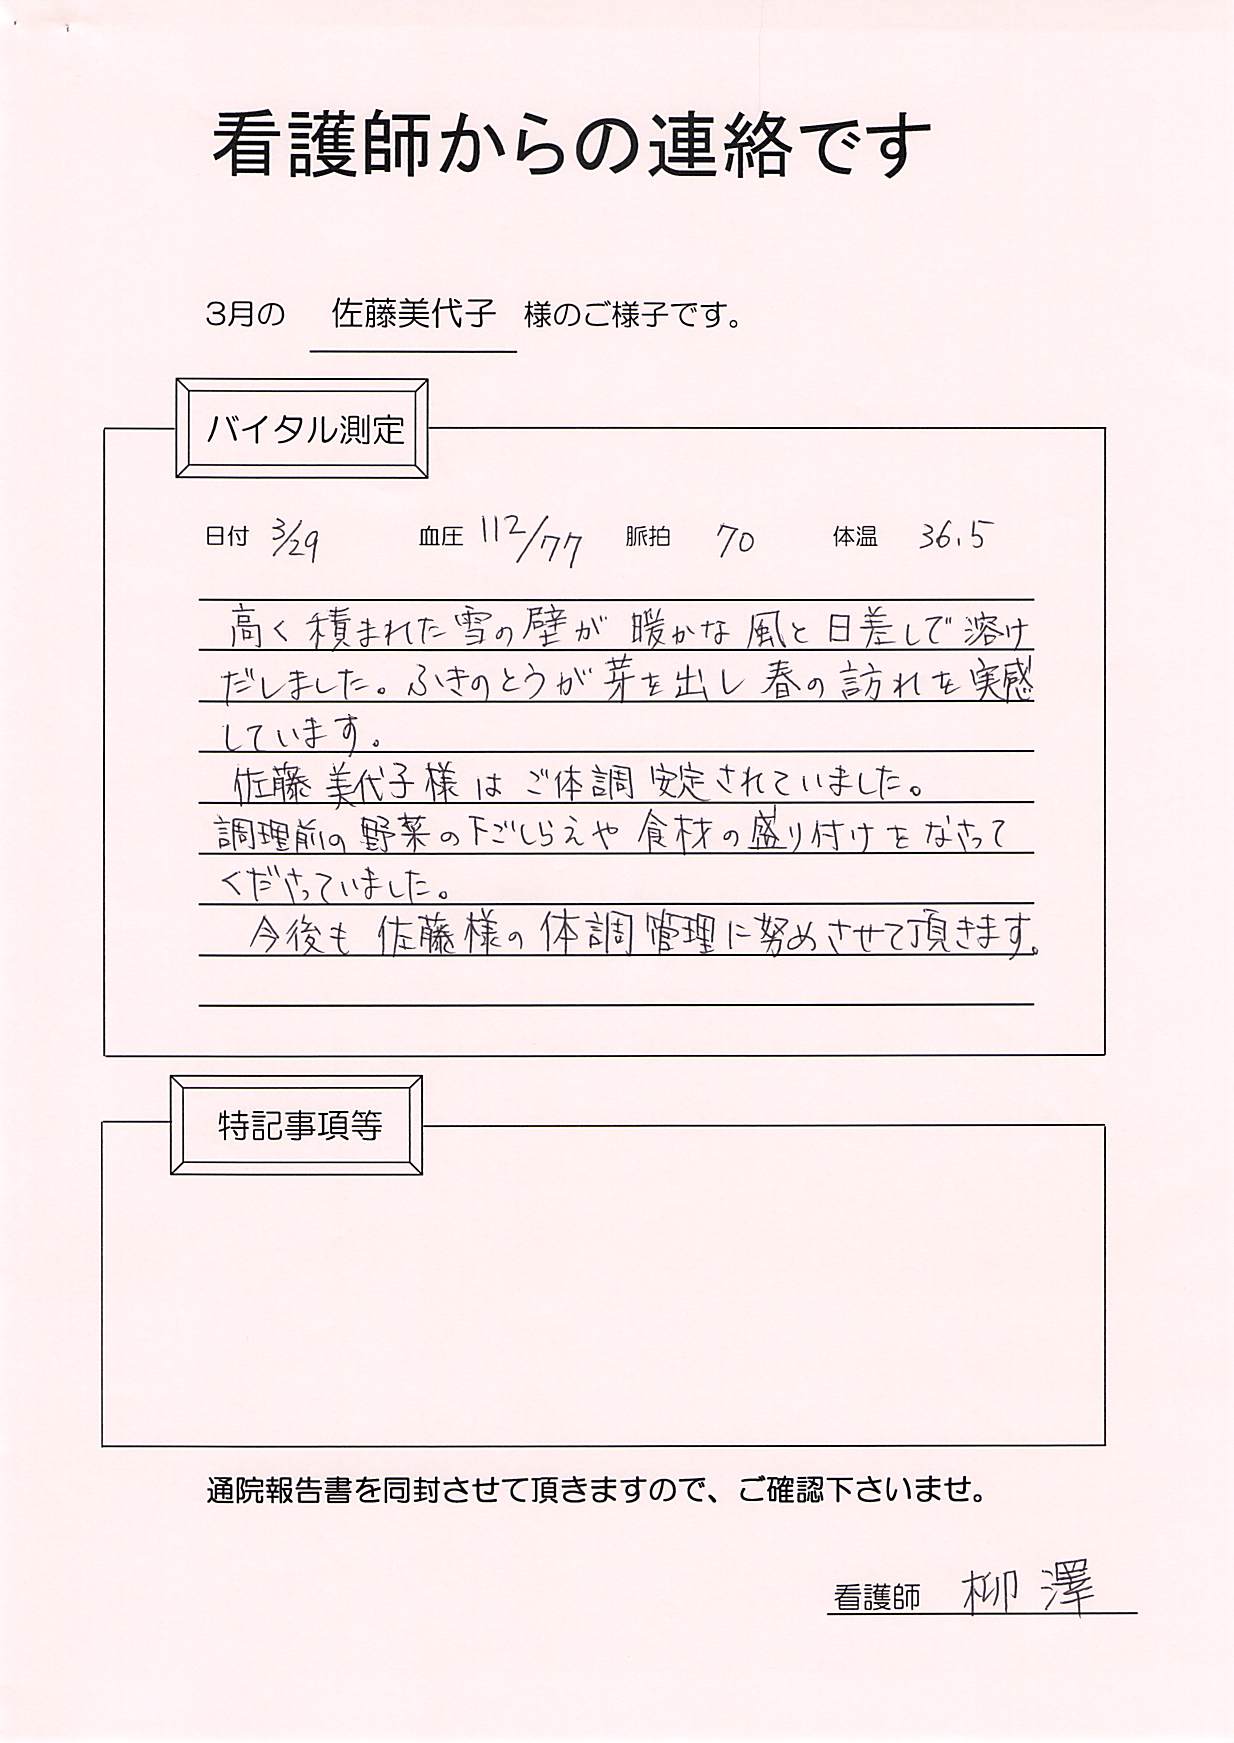 看護師からの連絡です
3月の 佐藤美代子 様のご様子です。
バイタル測定
日付 3/29 血圧 112/77 脈拍 70 体温 36.5
高く積まれた雪の壁が暖かな風と日差しで溶け
だしました。ふきのとうが芽を出し春の訪れを実感
しています。
佐藤美代子様はご体調安定されていました。
調理前の野菜の下ごしらえや食材の盛り付けをなさって
くださっていました。
今後も佐藤様の体調管理に努めさせて頂きます。
特記事項等
通院報告書を同封させて頂きますので、ご確認下さいませ。
看護師 柳澤